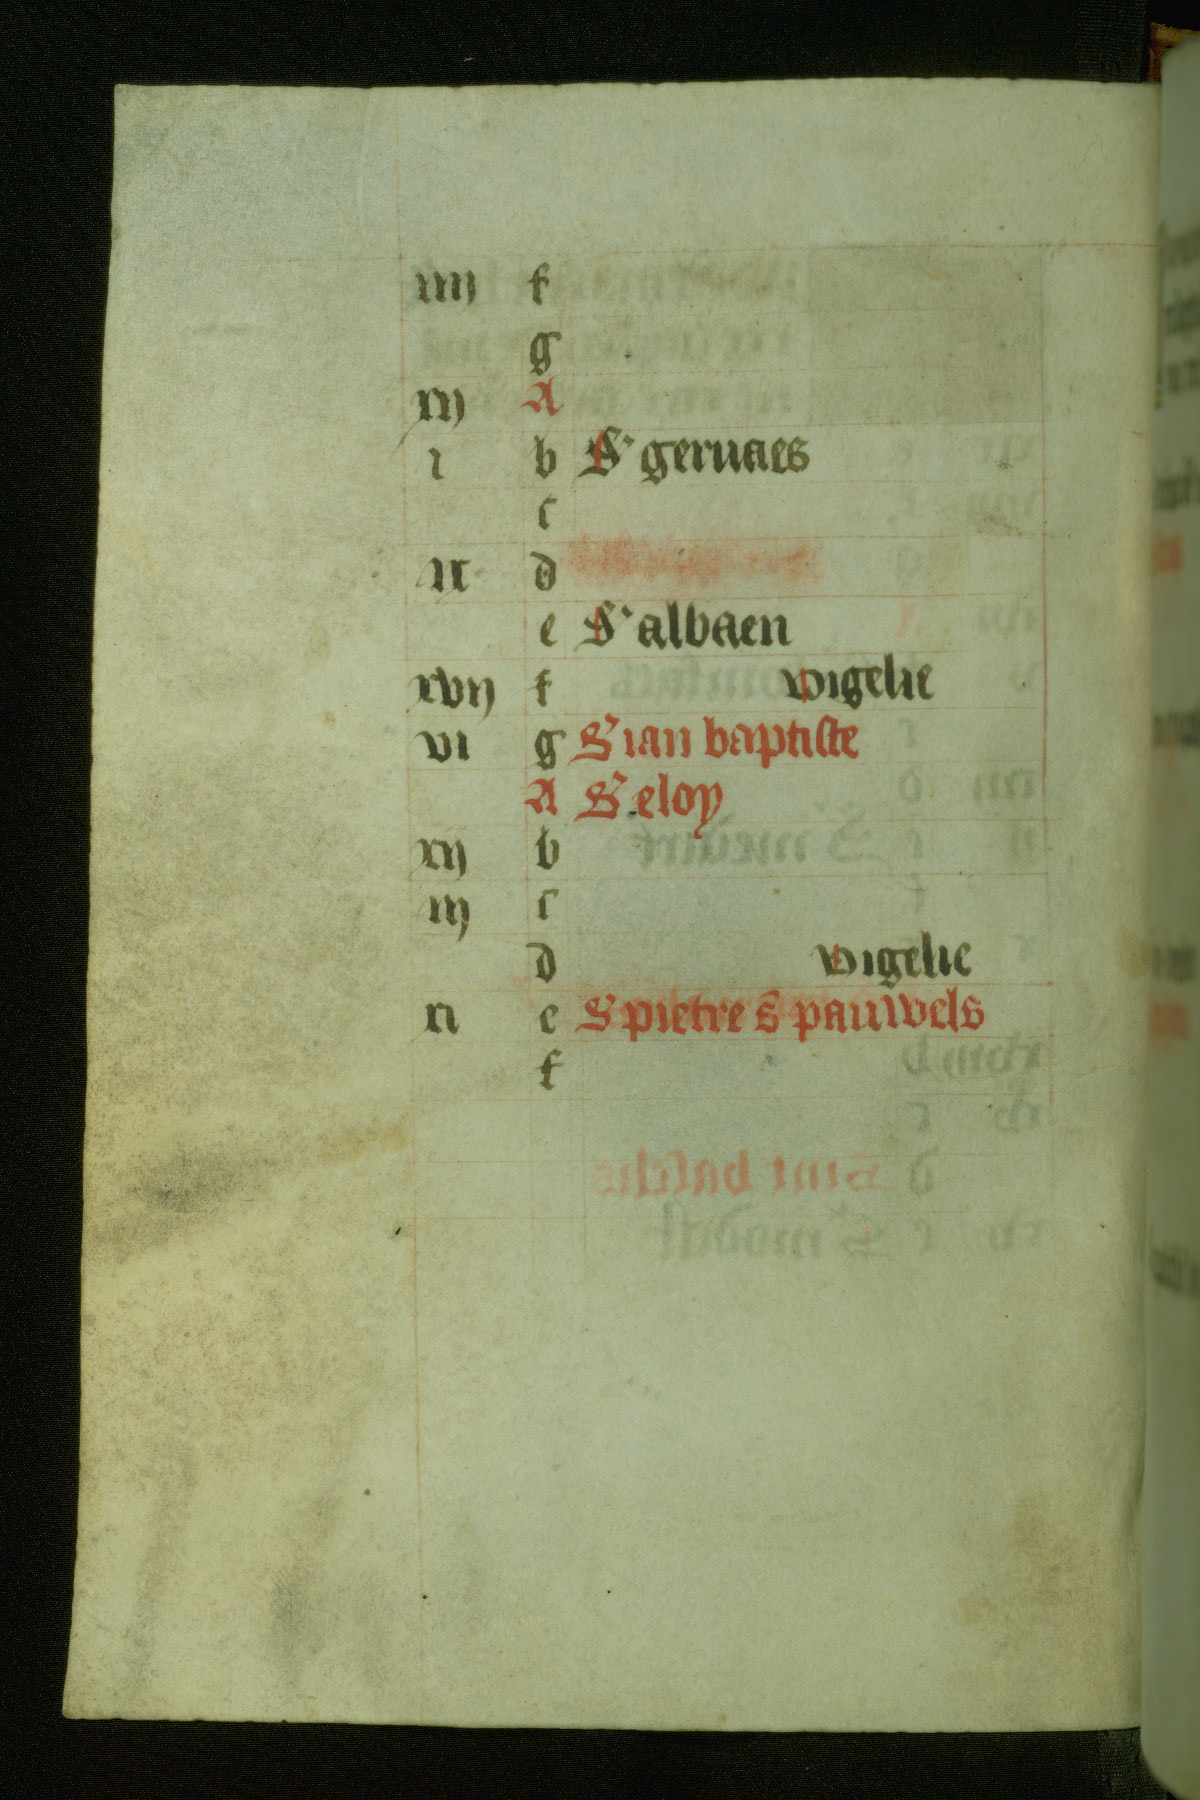 iiij f
g
xij A
i b S' geruaes
c
ix d
e S' albaen
xvij f vigelie
vi g S ian baptiste
A S eloy
xiij b
iij c
d vigelie
xi e S pietre s pauwels
f